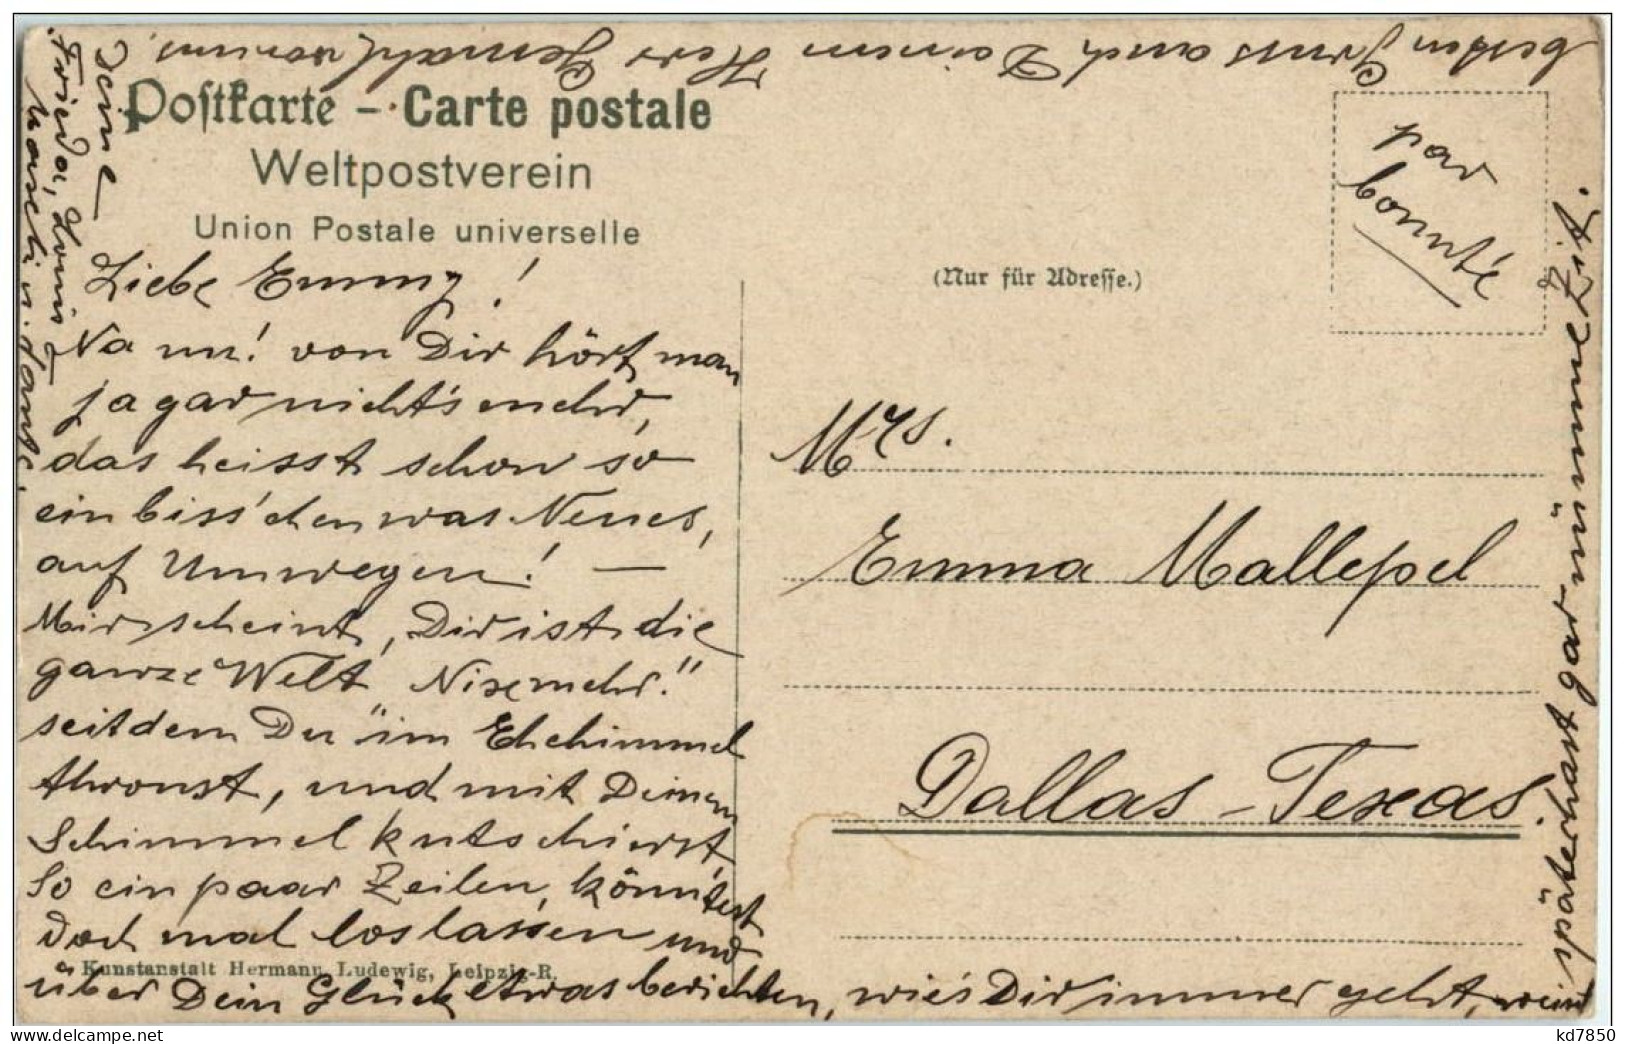 Postkarte – Carte postale
Weltpostverein
Union Postale universelle
(Nur für Adresse.)
par
bonnté
Liebe Emmy!
Na nu! von Dir hört man
ja gar nicht's mehr,
das heisst schon so
ein biss'chen was Neues,
auf Umwegen! —
Mir scheint, Dir ist die
ganze Welt Nixmehr."
seitdem Du "im Ehehimmel
thronst, und mit Deinem
Schimmel kutschierst,
So ein paar Zeilen, könntest
doch mal loslassen und
über Dein Glück etwas berichten, wie's Dir immer geht, wenn
späterhast gar nümme Zit.
besten Gruss auch Deinem Herr Gemahl von uns.
Deine
Frieda, Louis &
u. Tante.
Mrs.
Emma Mallepel
Dallas – Texas.
Kunstanstalt Hermann Ludewig, Leipzig-R.
kd7850